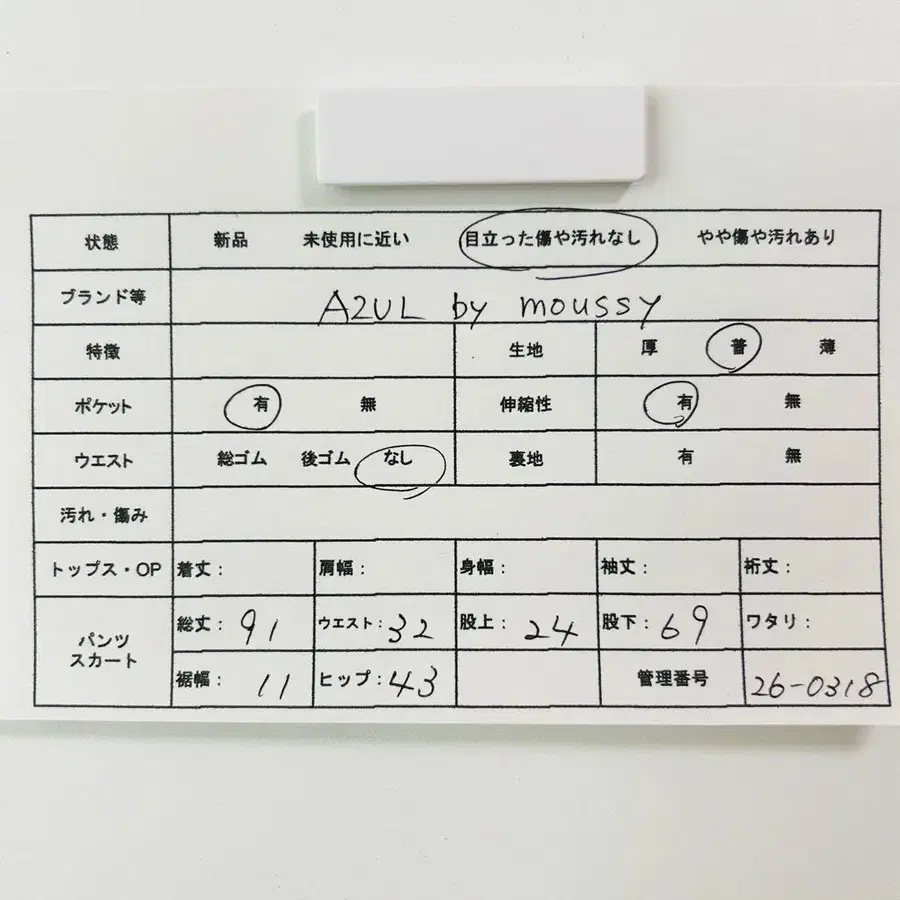 状態 新品 未使用に近い 目立った傷や汚れなし やや傷や汚れあり
ブランド等 AZUL by moussy
特徴 生地 厚 普 薄
ポケット 有 無 伸縮性 有 無
ウエスト 総ゴム 後ゴム なし 裏地 有 無
汚れ・傷み
トップス・OP 着丈: 肩幅: 身幅: 袖丈: 裄丈:
パンツ
スカート
総丈: 91 ウエスト: 32 股上: 24 股下: 69 ワタリ:
裾幅: 11 ヒップ: 43 管理番号 26-0318